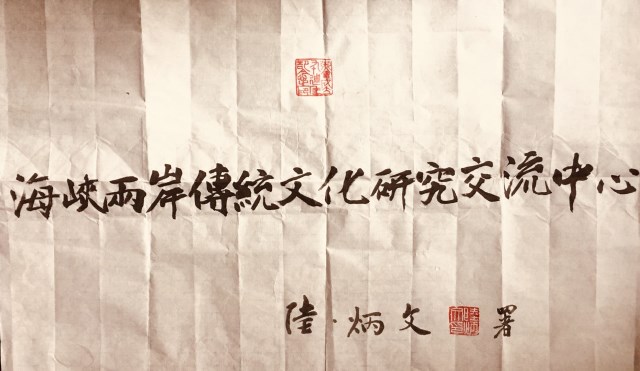 海峽兩岸傳統文化研究交流中心
陸·炳文 署